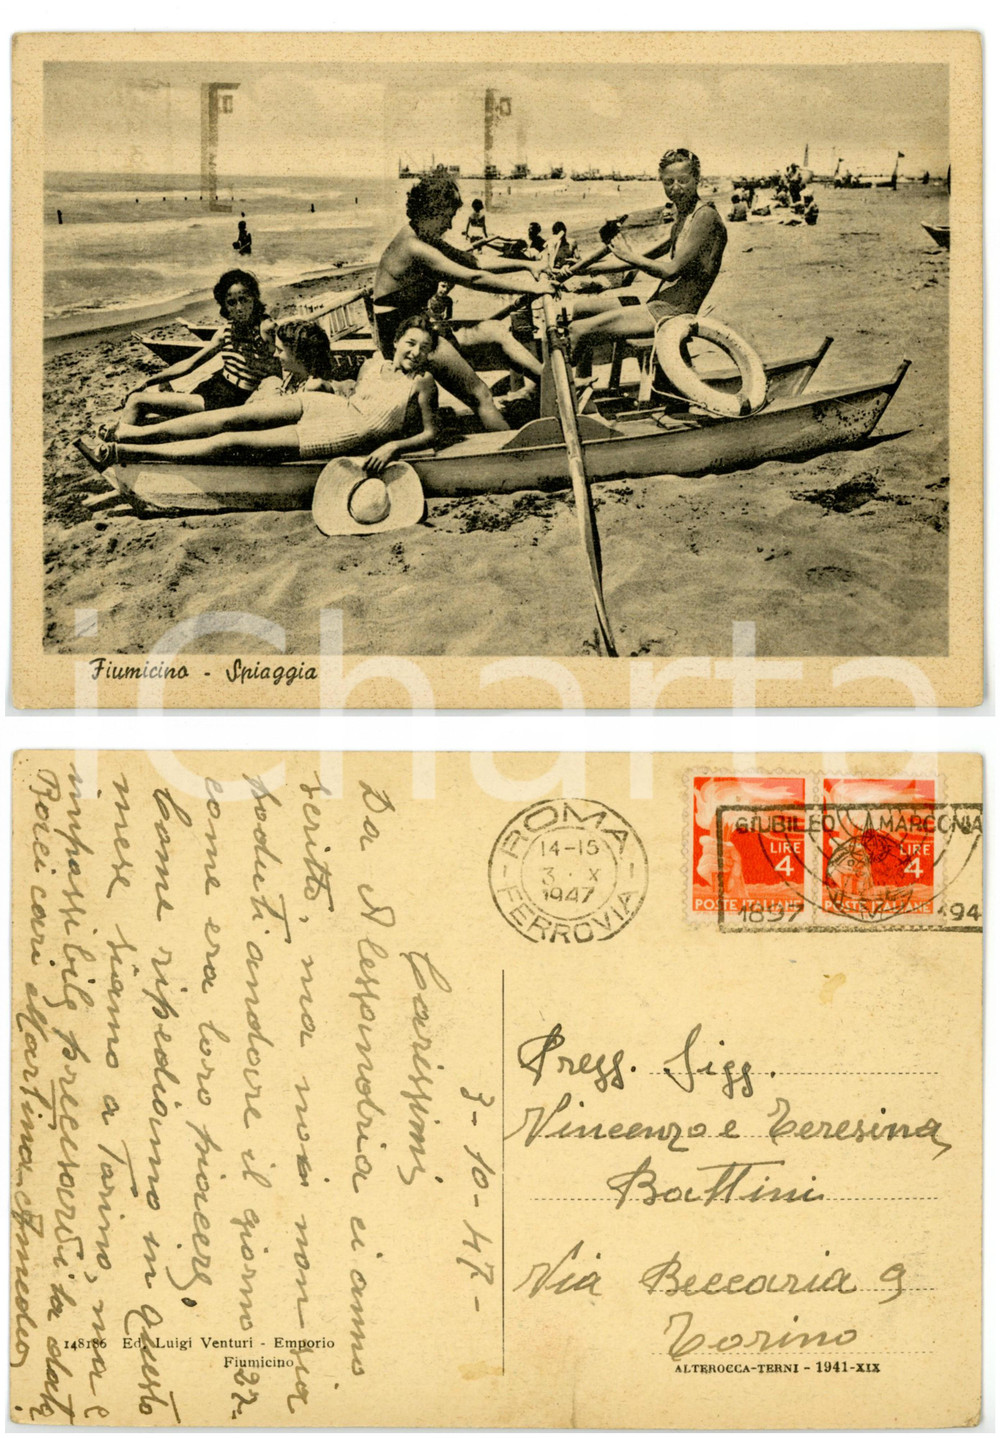 Fiumicino - Spiaggia
iCharta
ROMA
FERROVIA
14-15
3 · X
1947
GIUBILEO MARCONIA
1897 194
LIRE
4
POSTE ITALIANE
LIRE
4
POSTE ITALIANE
3-10-47-
Carissimi
Da Alessandria ci anno
scritto, ma noi non sia
poduti andare il giorno 27-
come era loro piacere,
Come ripediamo in questo
mese siamo a Torino, ma è
impossibile precisarvi la data
Baci cari Martina Amedeo
Preg. Sigg.
Vincenzo e Teresina
Battini
Via Beccaria 9
Torino
148186 Ed. Luigi Venturi - Emporio
Fiumicino
ALTEROCCA-TERNI - 1941-XIX